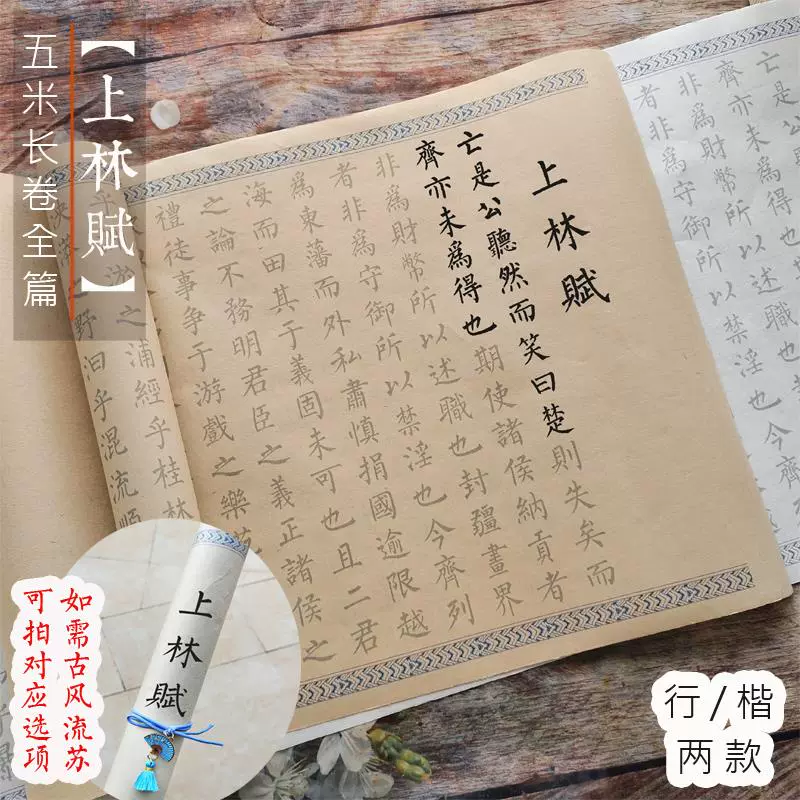 【上林賦】
五米长卷全篇
上林賦
亡是公聽然而笑曰楚則失矣而
齊亦未爲得也期使諸侯納貢者
非爲財幣所以述職也封疆畫界
者非爲守御所以禁淫也今齊列
爲東藩而外私肅慎捐國逾限越
海而田其于義固未可也且二君
之論不務明君臣之義正諸侯之
禮徒事争于游戲之樂苑
之浦經乎桂林
野汩乎混流順
亡是
齊亦未
非爲財幣所以述職也
者非爲守御所以禁淫也今齊
上林賦
如需古风流苏
可拍对应选项
行/楷
两款